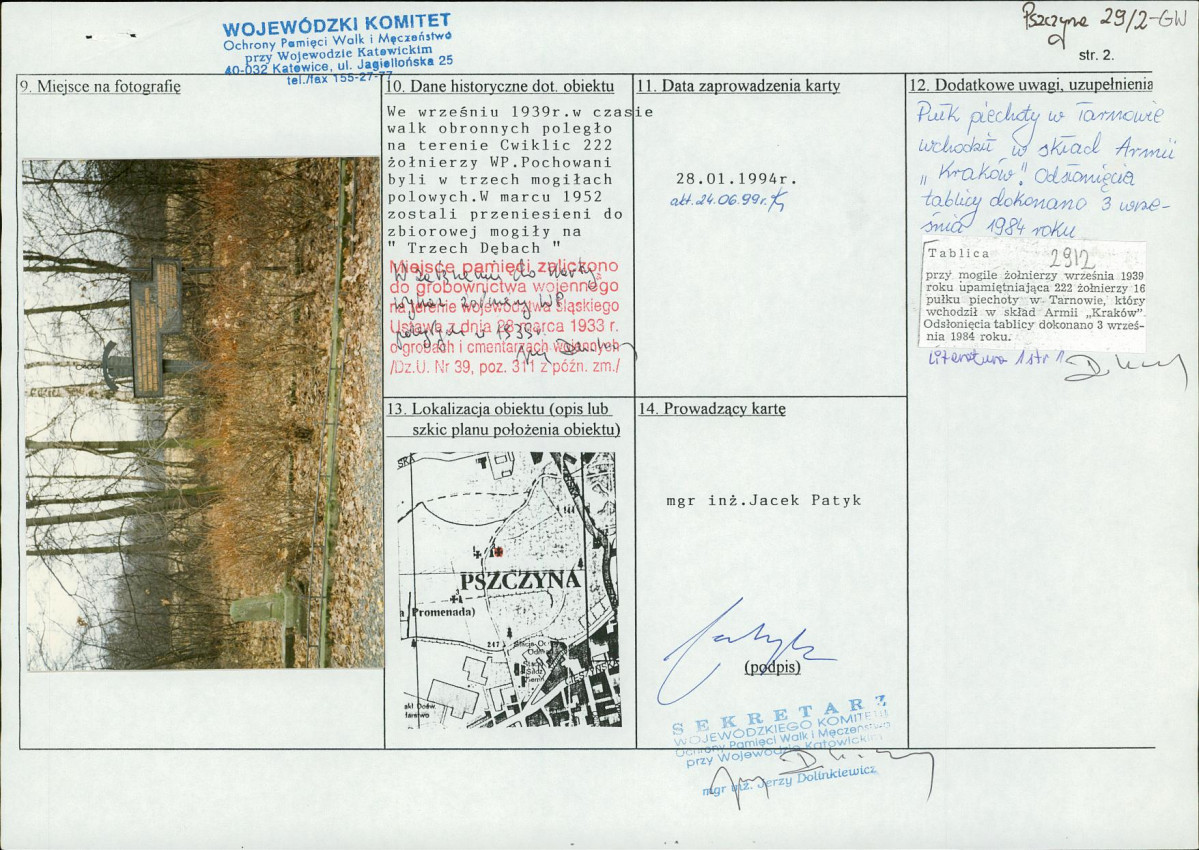 WOJEWÓDZKI KOMITET
Ochrony Pamięci Walk i Męczeństwa
przy Wojewodzie Katowickim
40-032 Katowice, ul. Jagiellońska 25
tel./fax 155-27-77
Pszczyna 29/2-GW
str. 2.
9. Miejsce na fotografię
10. Dane historyczne dot. obiektu
We wrześniu 1939r.w czasie
walk obronnych poległo
na terenie Cwiklic 222
żołnierzy WP.Pochowani
byli w trzech mogiłach
polowych.W marcu 1952
zostali przeniesieni do
zbiorowej mogiły na
" Trzech Dębach "
Miejsce pamięci zaliczono
do grobownictwa wojennego
na terenie województwa śląskiego
Ustawa z dnia 28 marca 1933 r.
o grobach i cmentarzach wojennych
/Dz.U. Nr 39, poz. 311 z późn. zm./
żołnierzy WP
w 1939r
11. Data zaprowadzenia karty
28.01.1994r.
akt.24.06.99r.
12. Dodatkowe uwagi, uzupełnienia
Pułk piechoty w Tarnowie
wchodził w skład Armii
„Kraków". Odsłonięcia
tablicy dokonano 3 wrze-
śnia 1984 roku
Tablica 2912
przy mogile żołnierzy września 1939
roku upamiętniająca 222 żołnierzy 16
pułku piechoty w Tarnowie, który
wchodził w skład Armii „Kraków".
Odsłonięcia tablicy dokonano 3 wrześ-
nia 1984 roku.
Literatura 1 str 1
13. Lokalizacja obiektu (opis lub
szkic planu położenia obiektu)
SKA
144
PSZCZYNA
a Promenada)
247
14. Prowadzący kartę
mgr inż.Jacek Patyk
(podpis)
SEKRETARZ
WOJEWÓDZKIEGO KOMITETU
Ochrony Pamięci Walk i Męczeństwa
przy Wojewodzie Katowickim
mgr inż. Jerzy Dolinkiewicz